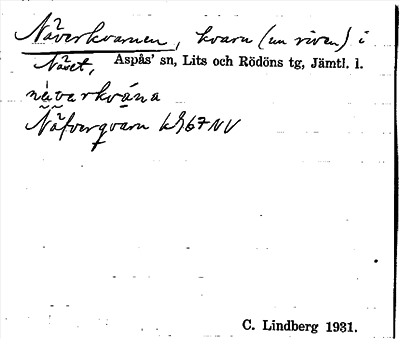 Nåverkvarnen, kvarn (nu riven) i
Näset, Aspås' sn, Lits och Rödöns tg, Jämtl. l.
nàverkvána
Näfverqvarn kS67NV
C. Lindberg 1931.